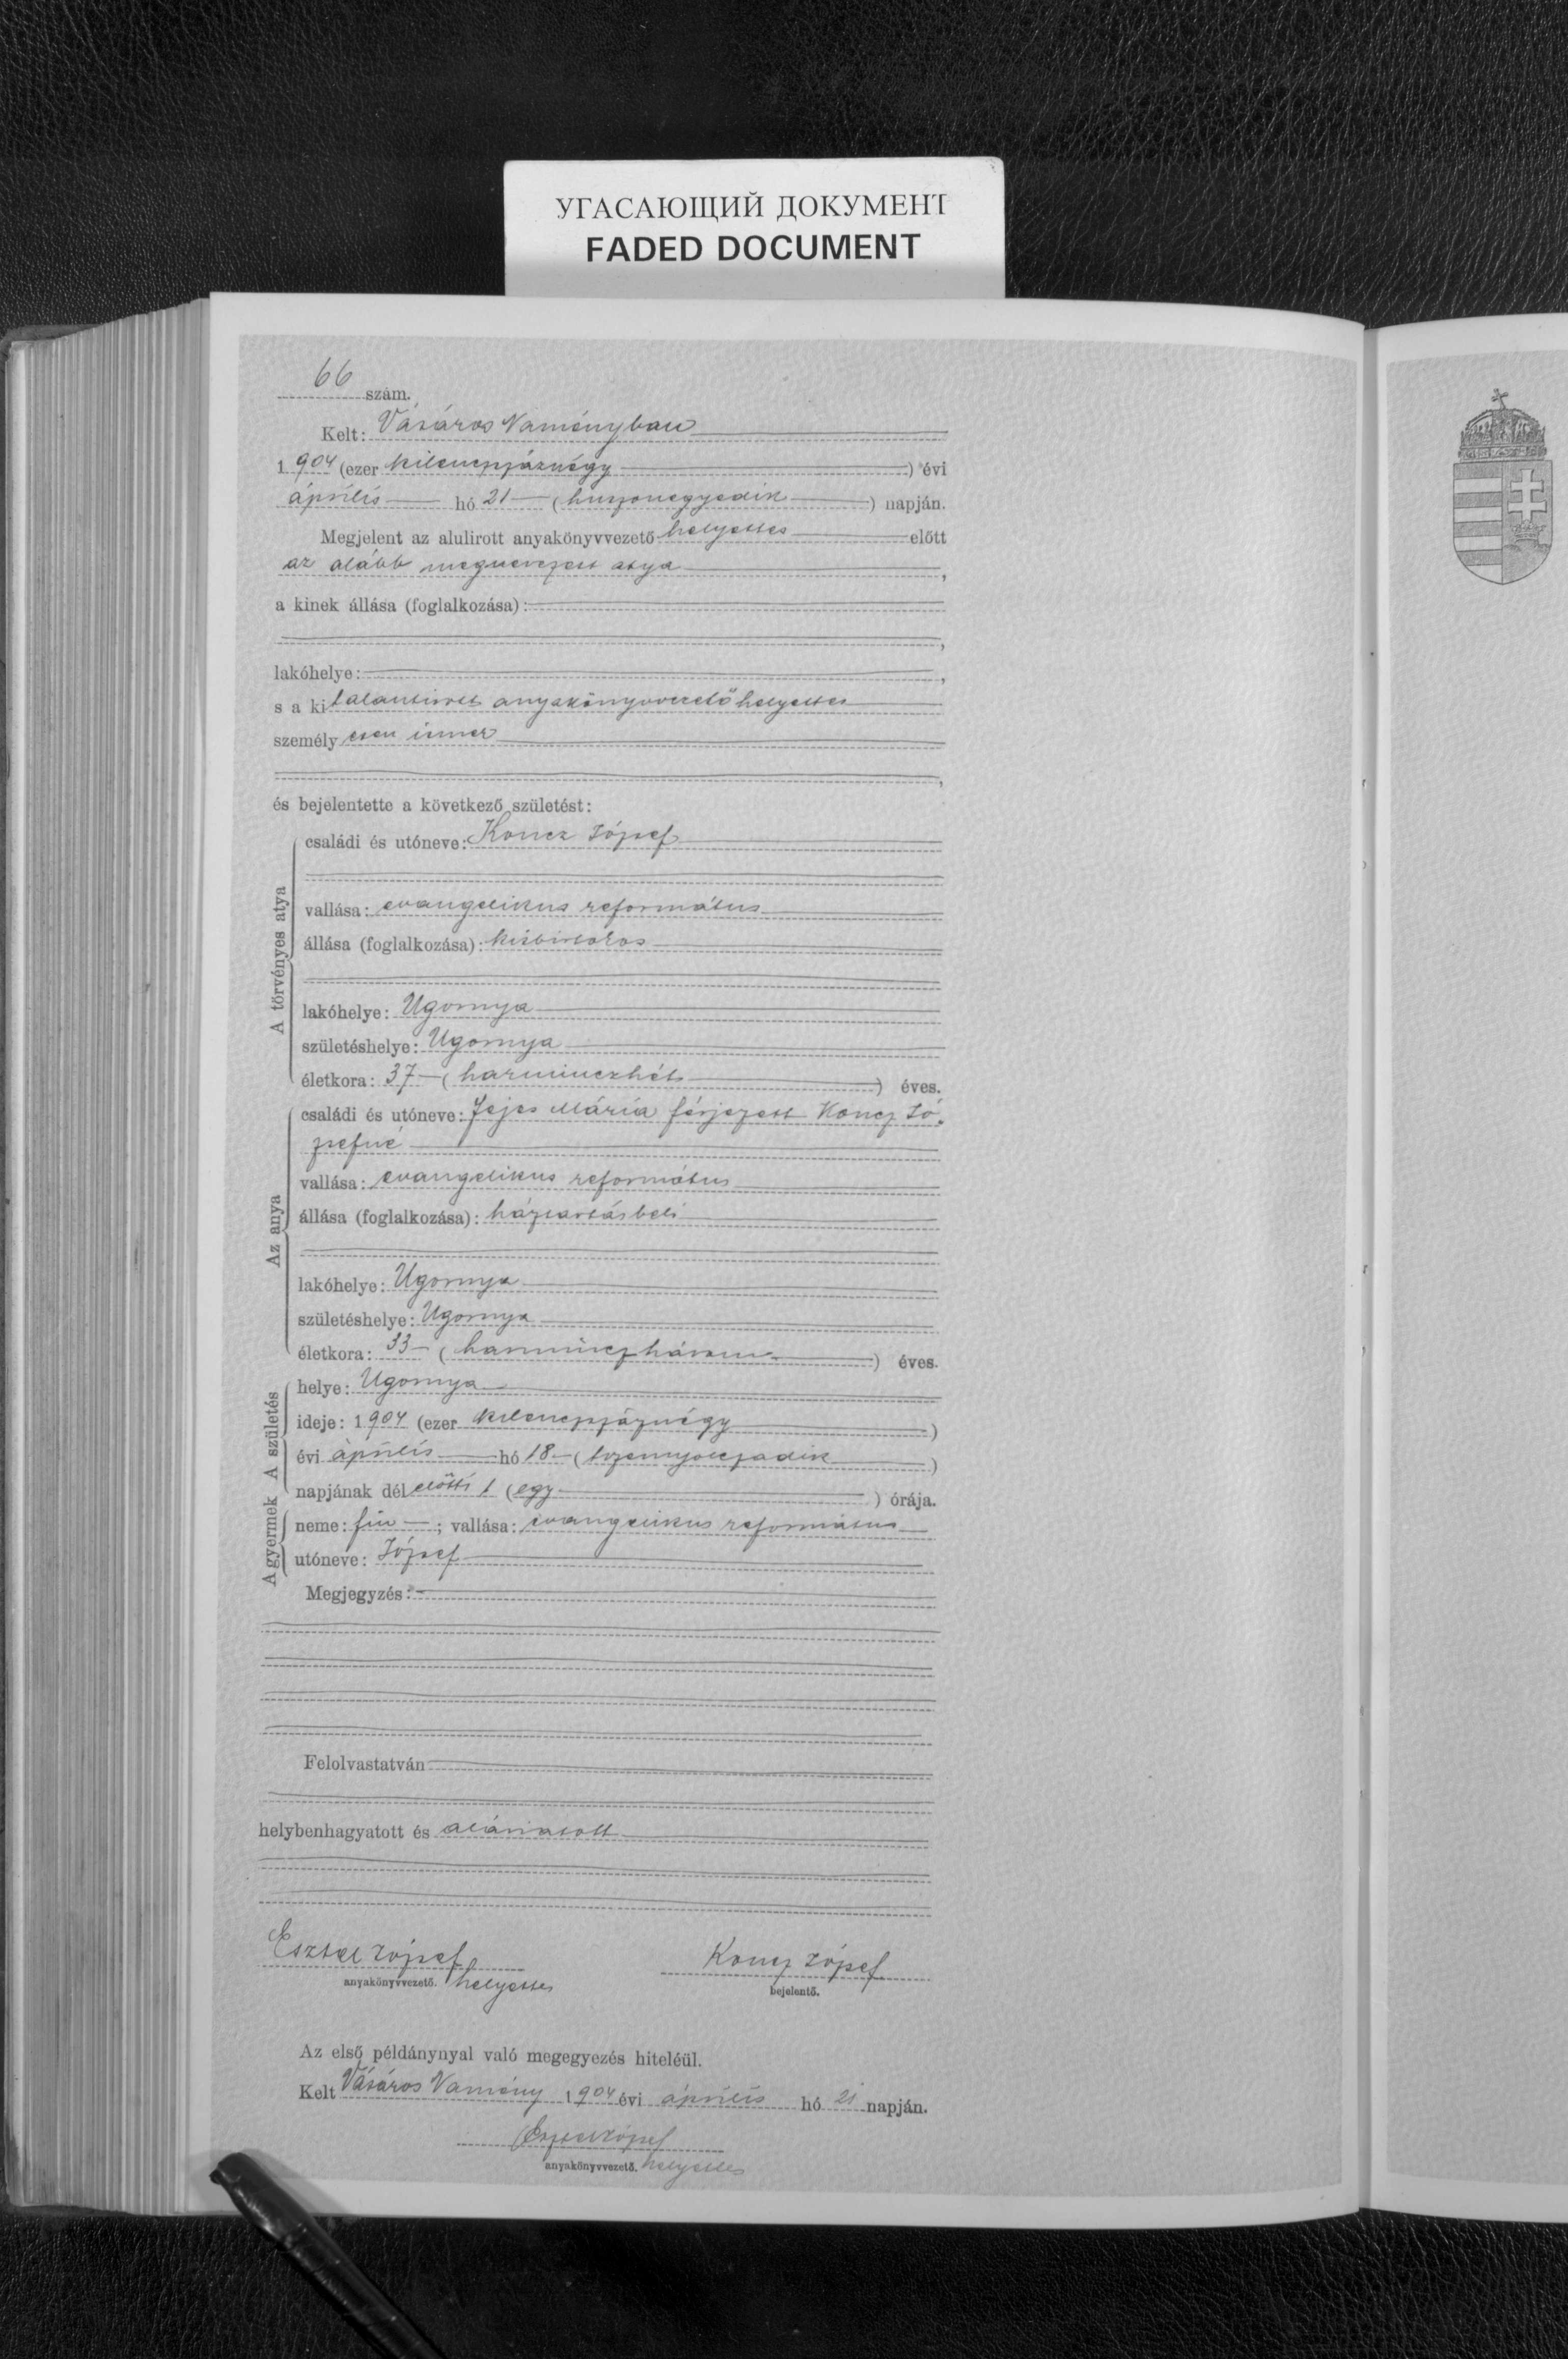 УГАСАЮЩИЙ ДОКУМЕНТ
FADED DOCUMENT
66 szám.
Kelt: Vásáros Naményban
1904 (ezer kilenczszáznégy) évi
április hó 21 (huszonegyedik) napján.
Megjelent az alulirott anyakönyvvezető helyettes előtt
az alább megnevezett atya,
a kinek állása (foglalkozása):
lakóhelye:
s a kit alantirott anyakönyvvezető helyettes
személyesen ismer
és bejelentette a következő születést:
A törvényes atya
családi és utóneve: Koncz József
vallása: evangelikus református
állása (foglalkozása): kisbirtokos
lakóhelye: Ugornya
születéshelye: Ugornya
életkora: 37 (harminczhét) éves.
Az anya
családi és utóneve: Fejes Mária férjezett Koncz Jó-
zsefné
vallása: evangelikus református
állása (foglalkozása): háztartásbeli
lakóhelye: Ugornya
születéshelye: Ugornya
életkora: 33 (harminczhárom) éves.
A születés
helye: Ugornya
ideje: 1904 (ezer kilenczszáznégy)
évi április hó 18 (tizennyolczadik)
napjának délelőtti 1 (egy) órája.
A gyermek
neme: fiu; vallása: evangelikus református
utóneve: József
Megjegyzés:
Felolvastatván
helybenhagyatott és aláiratott
Eszter József Koncz József
anyakönyvvezető. helyettes bejelentő.
Az első példánynyal való megegyezés hiteléül.
Kelt Vásáros Namény 1904 évi április hó 21 napján.
Eszter József
anyakönyvvezető. helyettes